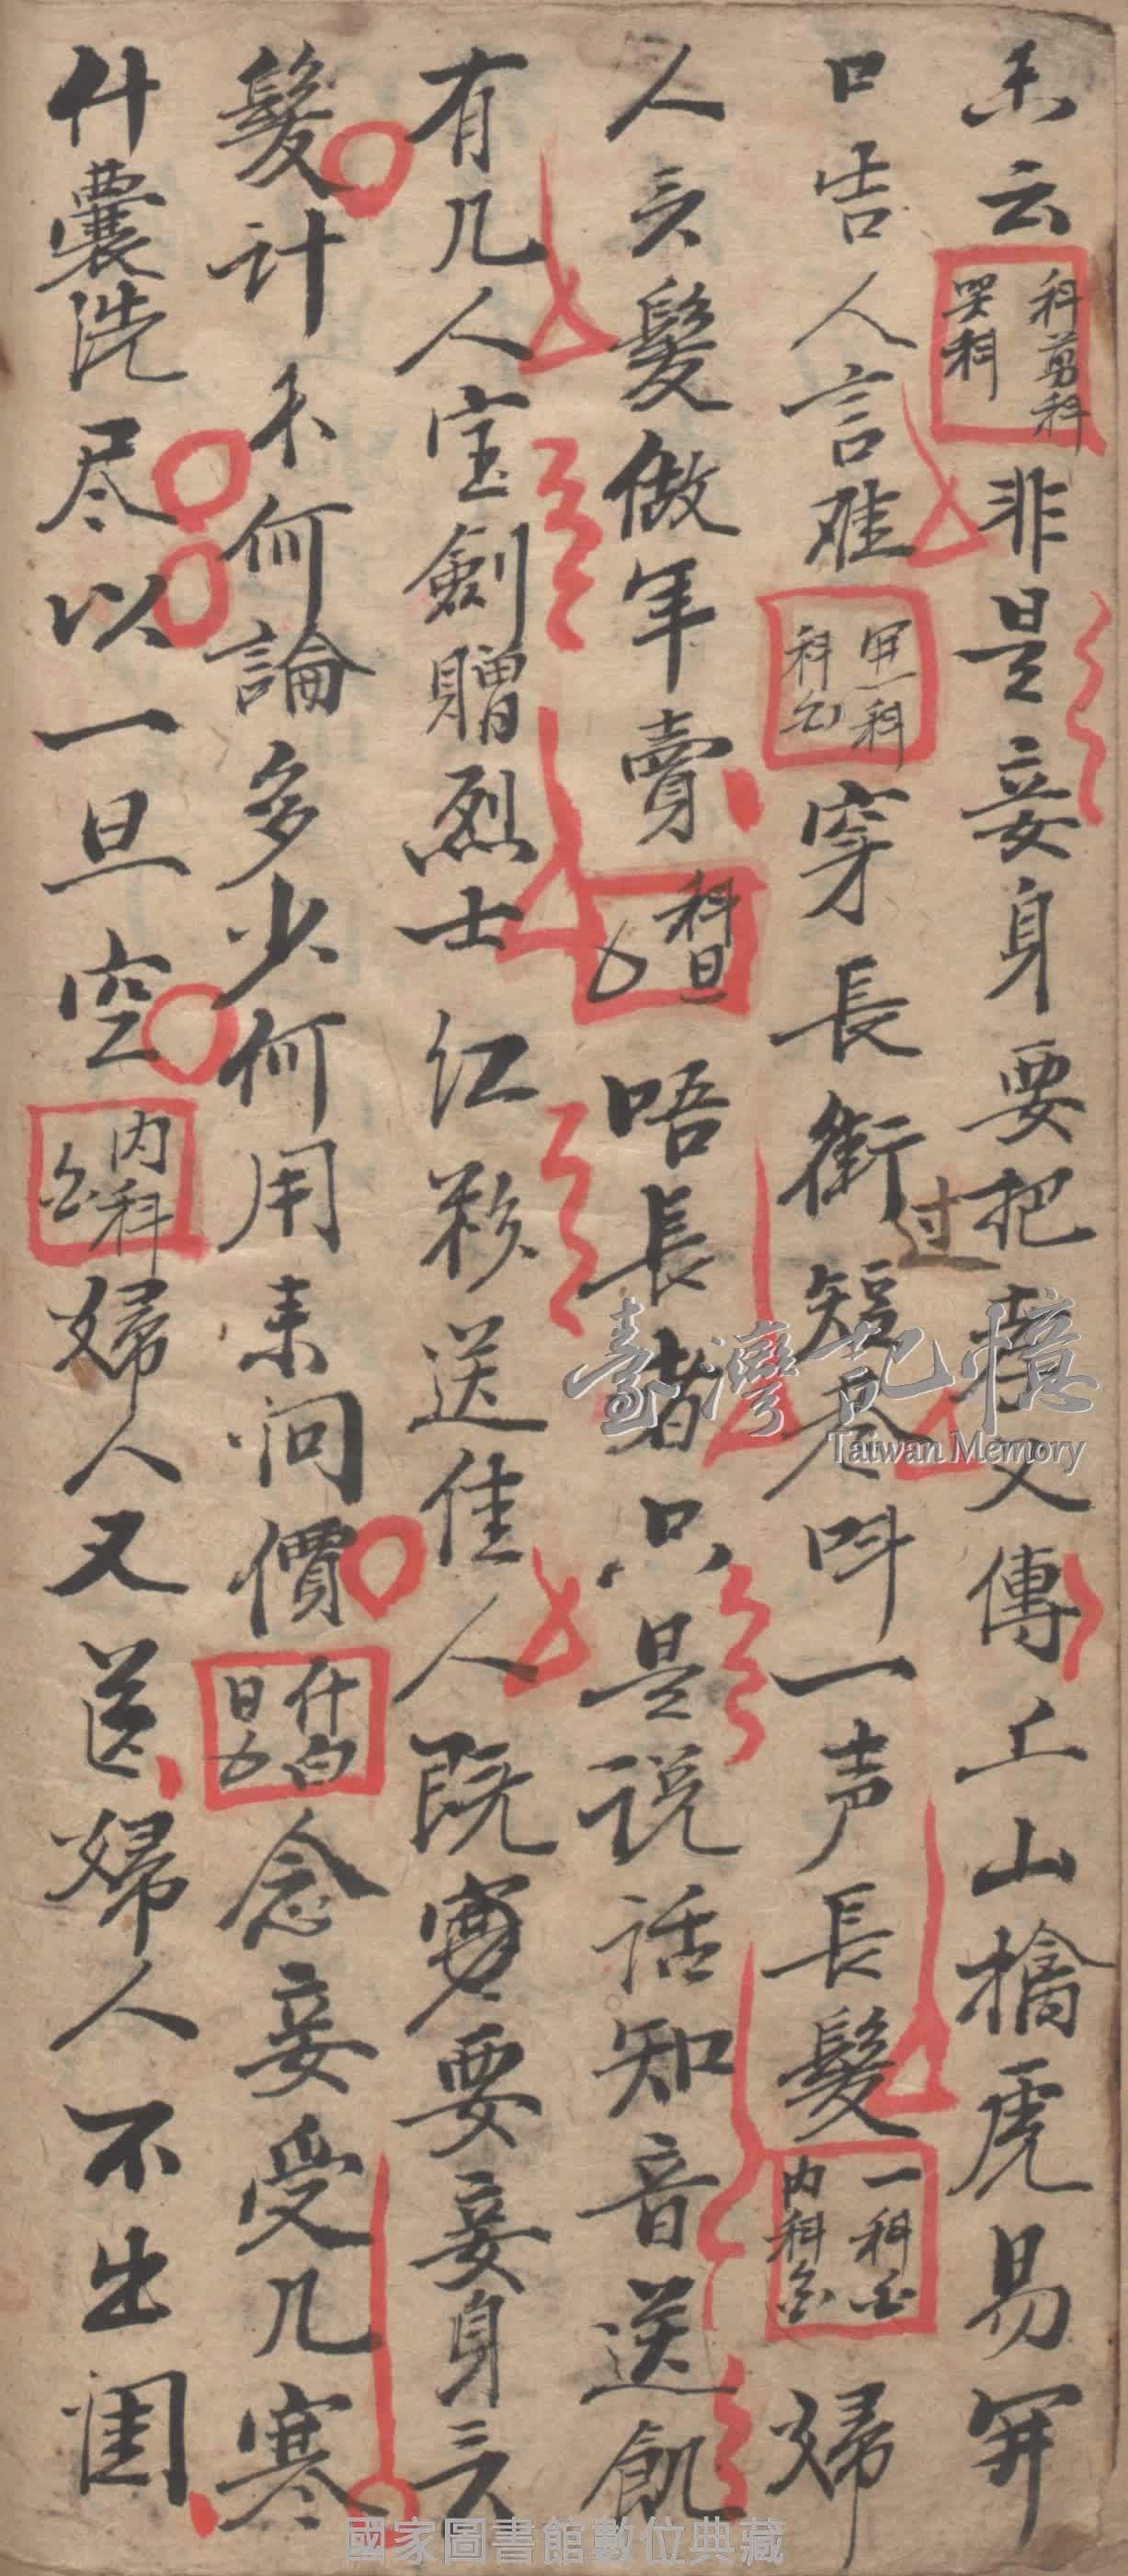 未云 科剪科 哭科 非是妾身要把 又傳上山擒虎易開
口告人言难 科 科白 穿長街过短巷叫一声長髮 一科白 内科白 婦
人头髮做年賣 科旦 唔長者只是说話知音送飢
有几人宝劍贈烈士红粉送佳人既 要妾身头
髮計不何論多少何用来问價 什白 旦 念妾受几寒
什囊洗尽以一旦空 内科白 婦人又送婦人不出闺
臺灣記憶
Taiwan Memory
國家圖書館數位典藏